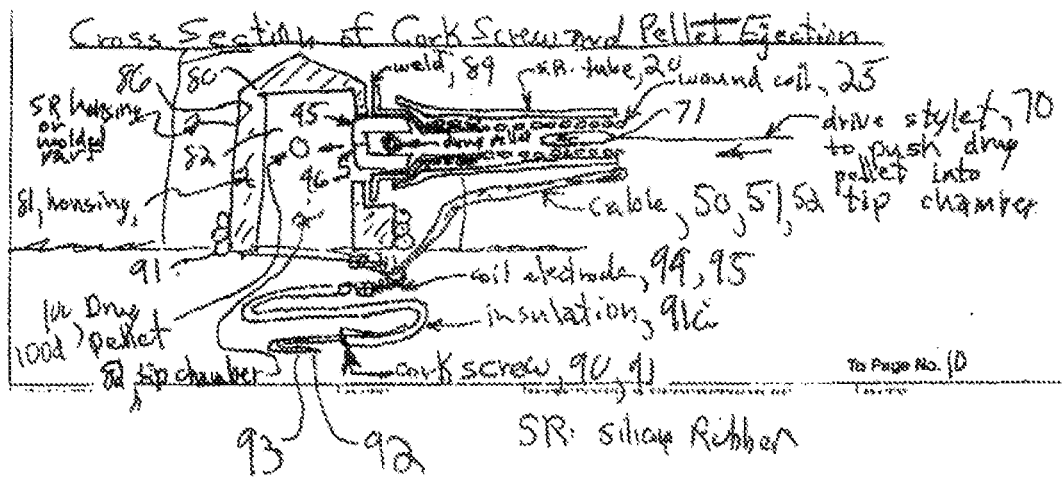 Cross Section of Cork Screw and Pellet Ejection
86 80
weld, 89
SR tube, 20
wound coil, 25
71
SR housing
or
molded
part
95
drug pellet
drive stylet, 70
to push drug
pellet into
tip chamber
82
96
81, housing,
cable, 50, 51, 52
91
coil electrode, 94, 95
Drug
100d pellet
insulation, 91i
tip chamber
cork screw, 90, 91
To Page No. 10
93 92
SR: Silicone Rubber